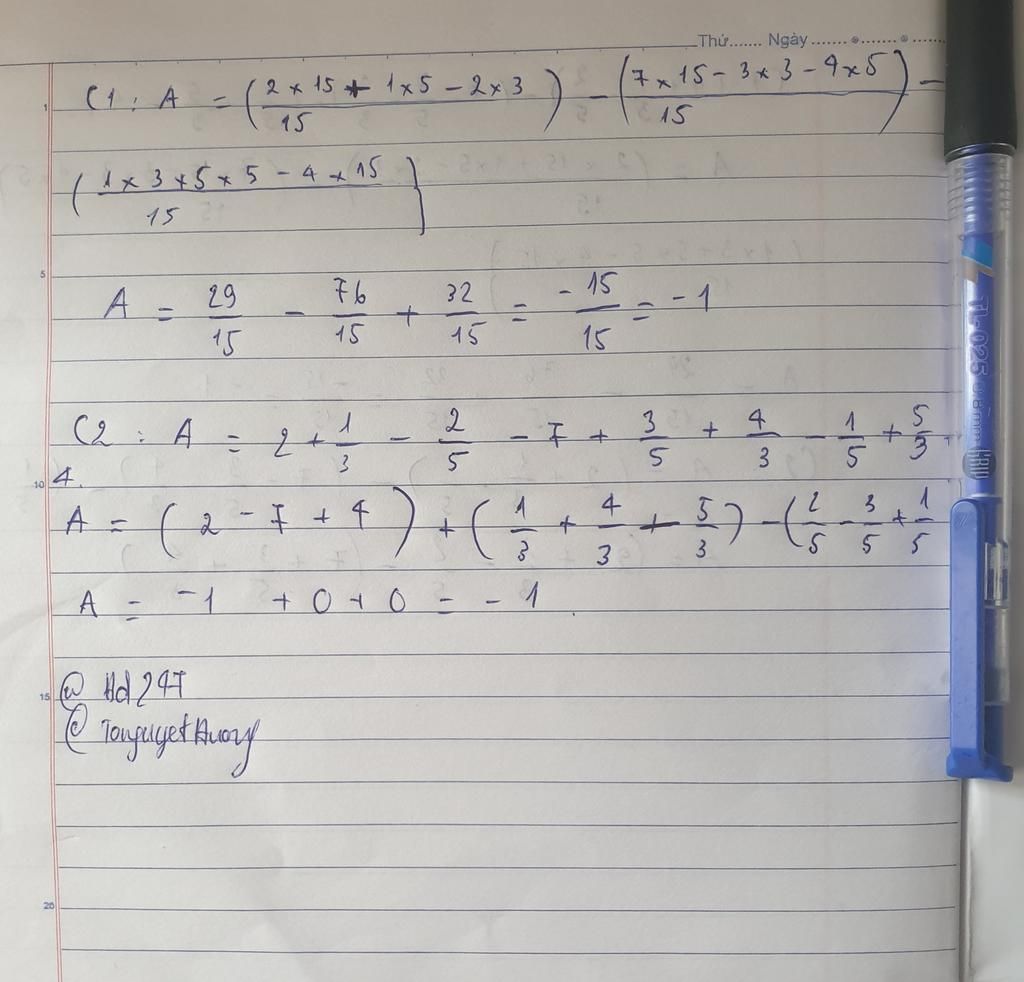 Thứ....... Ngày ....................
C1 : A = (2 × 15 + 1 × 5 - 2 × 3 / 15) - (7 × 15 - 3 × 3 - 4 × 5 / 15) -
(1 × 3 + 5 × 5 - 4 × 15 / 15)
A = 29/15 - 76/15 + 32/15 = -15/15 = -1
C2 : A = 2 + 1/3 - 2/5 - 7 + 3/5 + 4/3 - 1/5 + 5/3 +
4.
A = (2 - 7 + 4) + (1/3 + 4/3 + 5/3) - (2/5 - 3/5 + 1/5
A = -1 + 0 + 0 = -1.
@ Hd247
@
1
5
10
15
20
TL-025 0.8mm